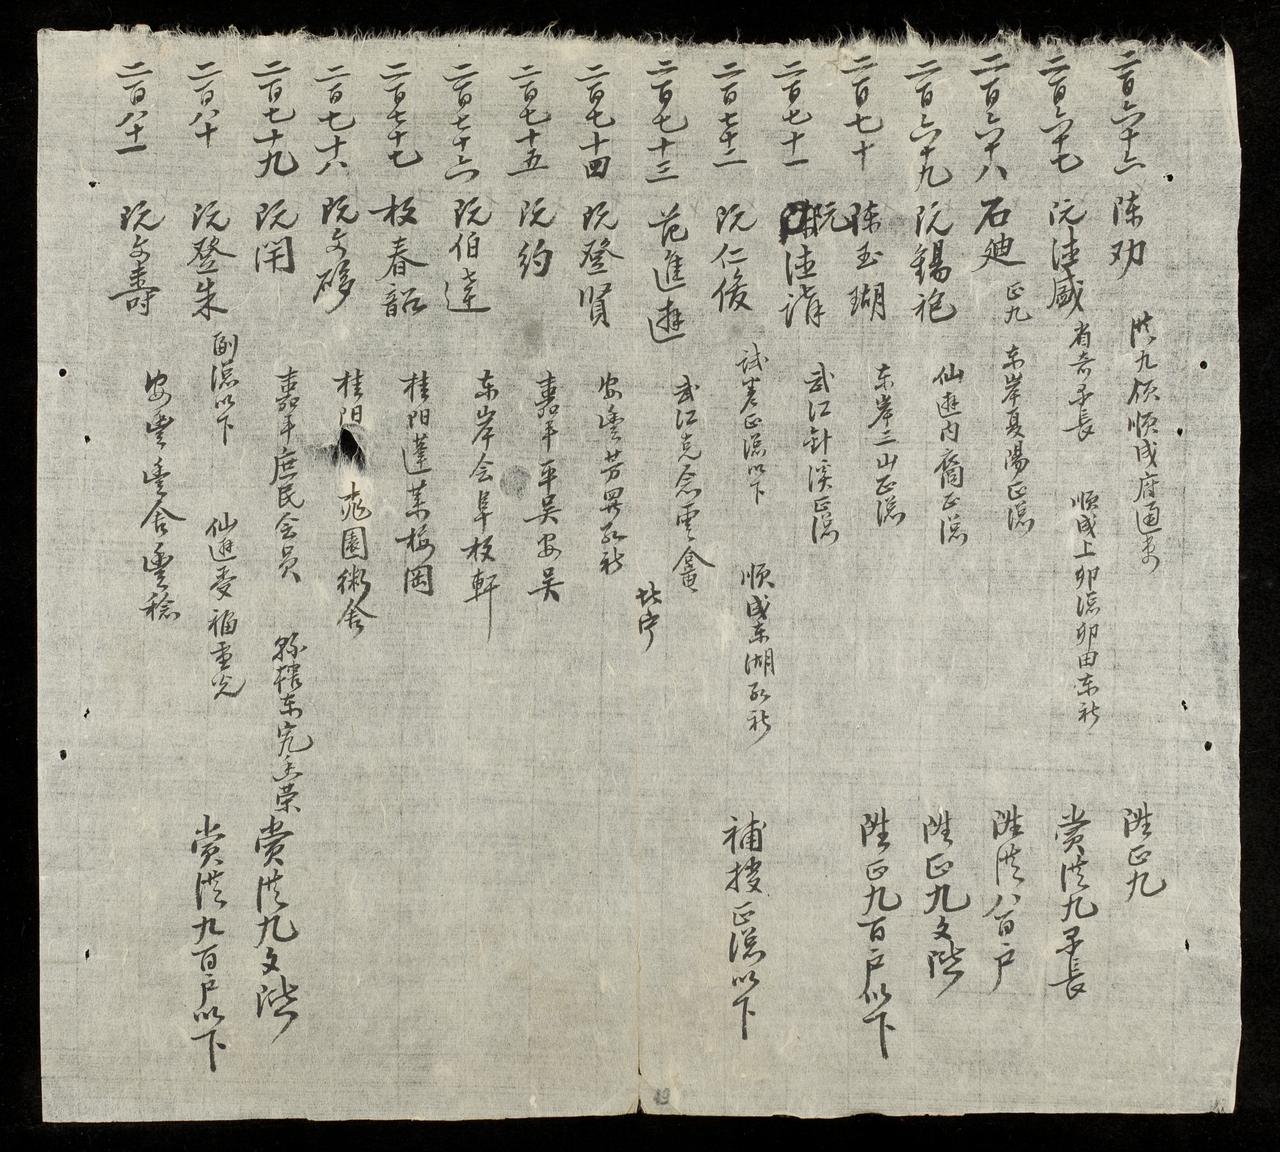 二百六十六 陳功 洪九領順成府通吏 陞正九
二百六十七 阮德盛 省奇弟長 順成上卯總卯田東社 賞洪九弟長
二百六十八 石廸 正九 東岸夏陽正總 陞洪八百戶
二百六十九 阮錫袍 仙遊內裔正總 陞正九文階
二百七十 陳玉瑚 東岸三山正總 陞正九百戶以下
二百七十一 阮德講 武江針溪正總
二百七十二 阮仁俊 試差正總以下 順成東湖社 補授正總以下
二百七十三 范進遊 武江克念雲畬 北寧
二百七十四 阮登賢 安豐芳羅社
二百七十五 阮約 嘉平平吳安吳
二百七十六 阮伯達 東岸会阜枚軒
二百七十七 枚春韶 桂陽蓬萊梅岡
二百七十八 阮文移 桂陽 桃園衛舍
二百七十九 阮用 嘉平庶民会員 東究香荣 賞洪九文階
二百八十 阮登朱 副總以下 仙遊 福重光 賞洪九百戶以下
二百八十一 阮文壽 安豐豐舍豐稔